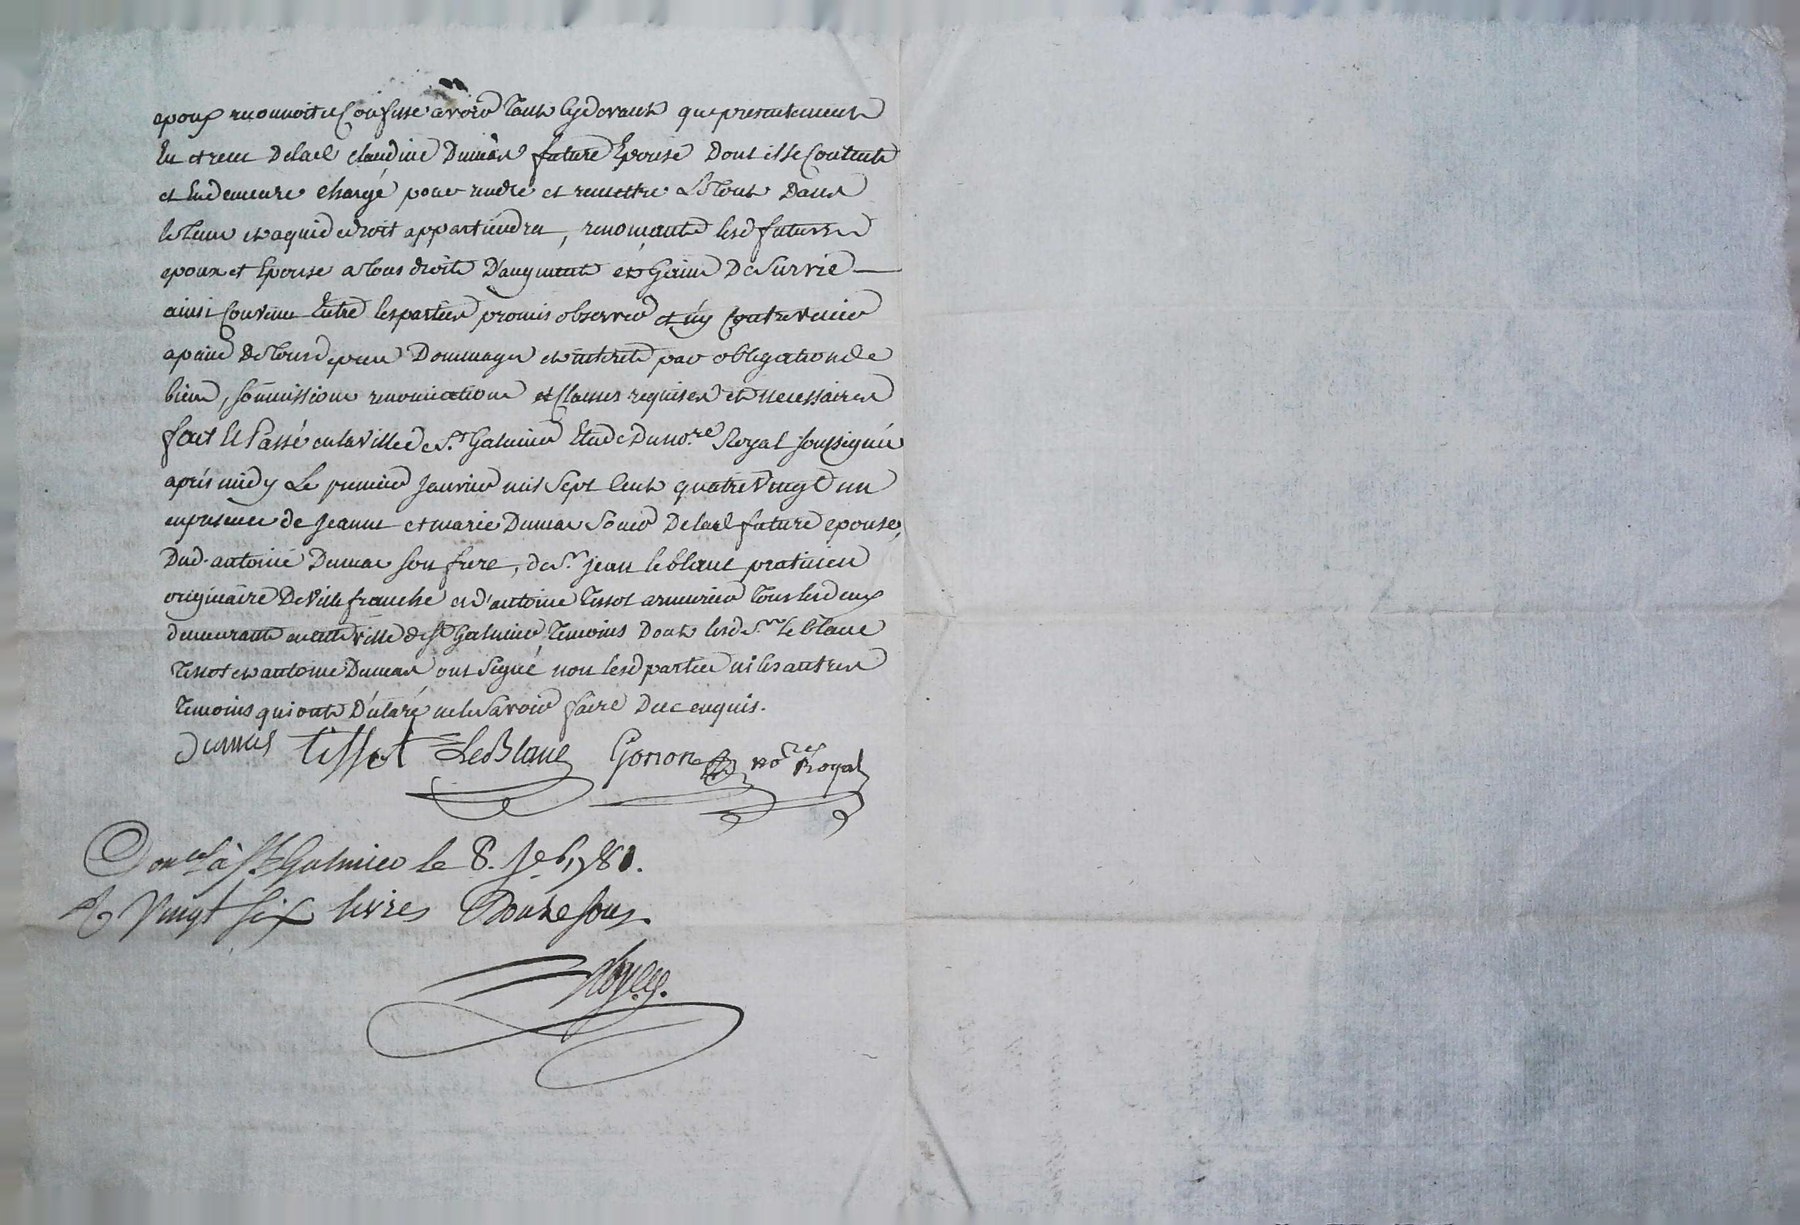 epoux reconnoit et Confesse avoir tant Cydevant que presentement
Eu et recu Delad claudine Dumas future Epouse Dont il se Contente
et En demeure chargé pour rendre et remettre Le tout Dans
le tems et a qui de droit appartiendra, renonçants lesd futurs
epoux et Epouse a tous droits D'augment et Gains De Survie
ainsi Convenu Entre les parties promis observer et n'y Contrevenir
a peine De tous depens Dommages et interets par obligation de
biens, soumissions renonciations et Clauses requises et necessaires
fait et Passé en la ville de St. Galmier Etude Du nore. Royal soussigné
après midy Le premier Janvier mil Sept Cent quatre Vingt un
en presence de Jeanne et marie Dumas Soeurs Delad future epouse,
Dud. antoine Dumas son frere, de Sr. jean leblanc praticien
originaire De Villefranche et d'antoine Tissot armurier tous les deux
demeurants en cette ville de St Galmier Temoins Dont lesd Srs leblanc
Tissot et antoine Dumas ont Signé non lesd parties ni les autres
Temoins qui ont Déclaré ne le Savoir faire De ce enquis.
Dumas tissot LeBlanc Gonon nore Royal
Conlé à St Galmier le 8. Je 1781.
R Vingt Six livres Douze sous.